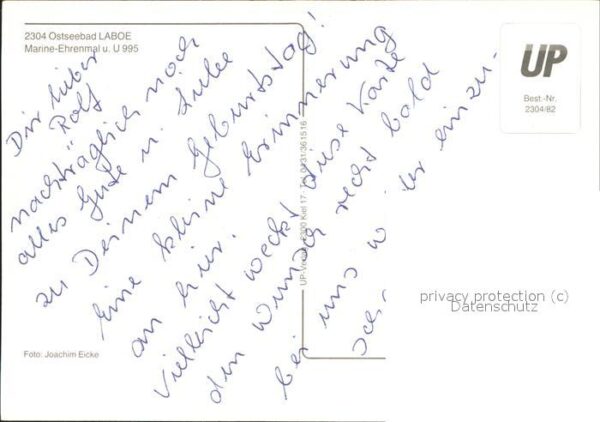 2304 Ostseebad LABOE
Marine-Ehrenmal u. U 995
UP
Best.-Nr.
2304/82
Dir lieber
Rolf
nachträglich noch
alles Gute u. Liebe
zu Deinem Geburtstag!
Eine kleine Erinnerung
an hier.
Vielleicht weckt diese Karte
den Wunsch recht bald
bei uns w ter einzu-
UP-Verlag 2300 Kiel 17 Tel 0431/361516
privacy protection (c)
Datenschutz
Foto: Joachim Eicke